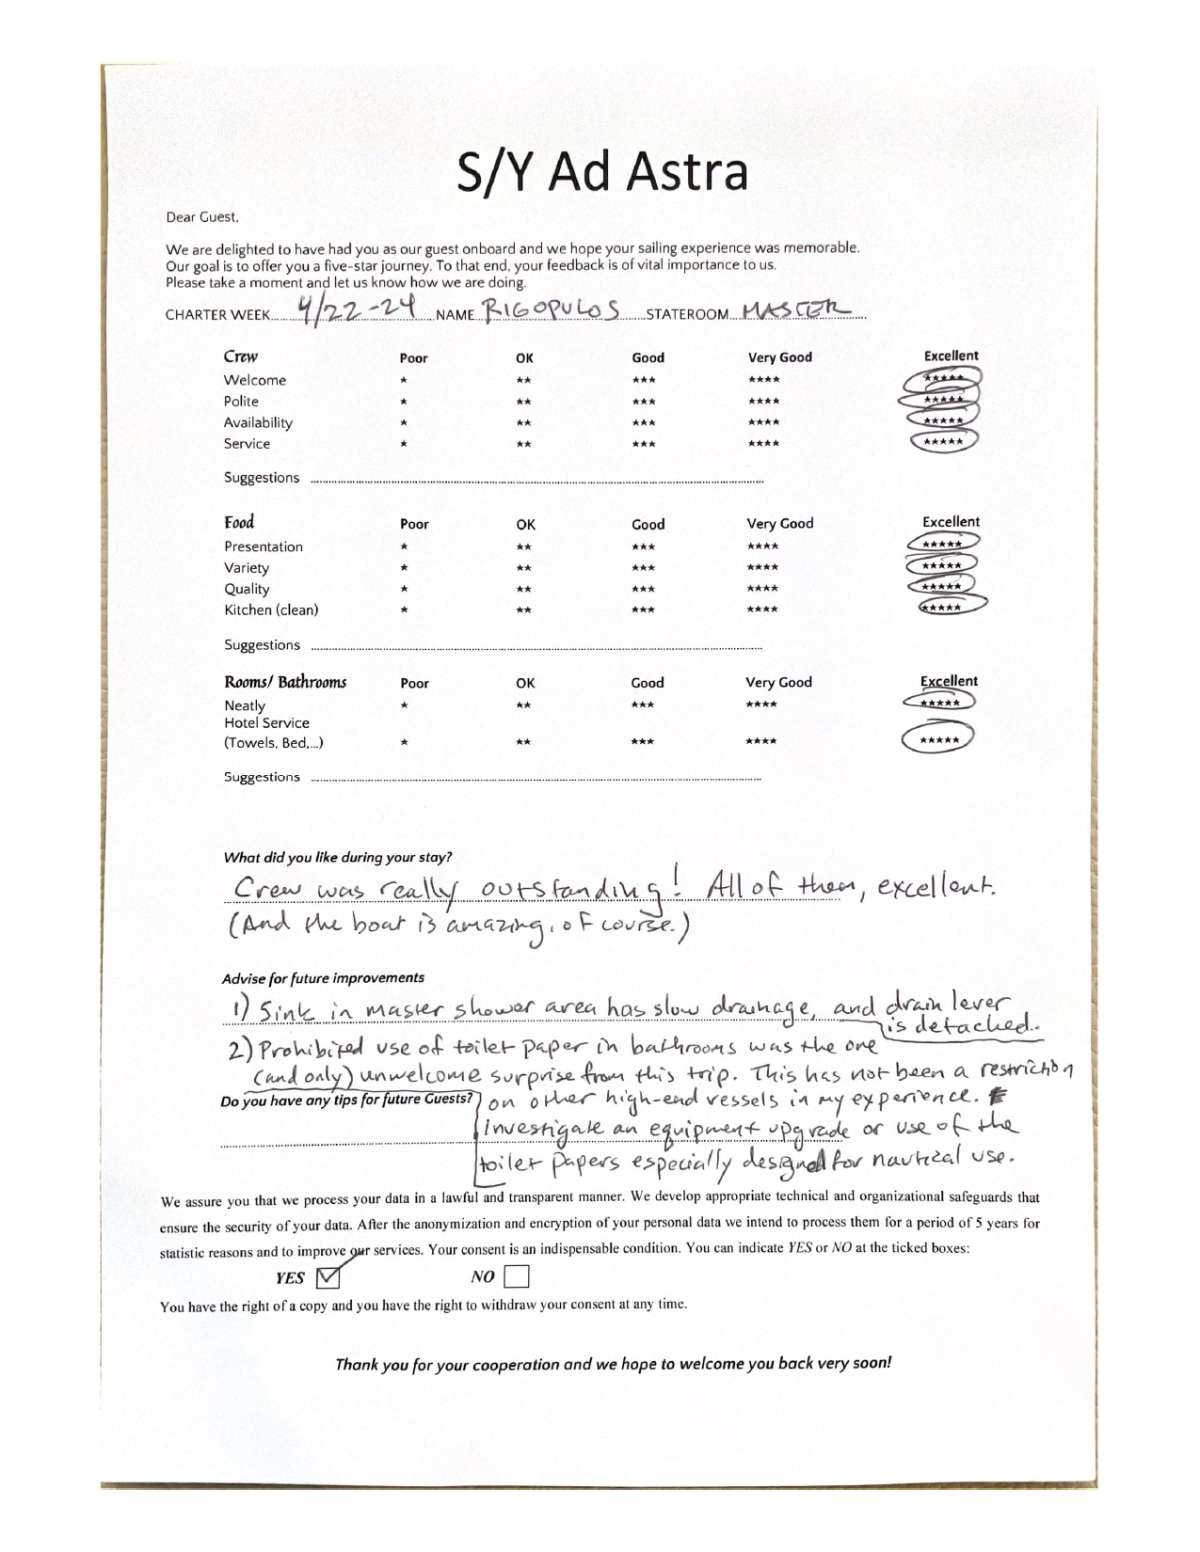 S/Y Ad Astra
Dear Guest,
We are delighted to have had you as our guest onboard and we hope your sailing experience was memorable.
Our goal is to offer you a five-star journey. To that end, your feedback is of vital importance to us.
Please take a moment and let us know how we are doing.
CHARTER WEEK 4/22-24 NAME RIGOPULOS STATEROOM MASTER
Crew Poor OK Good Very Good Excellent
Welcome ★ ★★ ★★★ ★★★★ ★★★★★
Polite ★ ★★ ★★★ ★★★★ ★★★★★
Availability ★ ★★ ★★★ ★★★★ ★★★★★
Service ★ ★★ ★★★ ★★★★ ★★★★★
Suggestions
Food Poor OK Good Very Good Excellent
Presentation ★ ★★ ★★★ ★★★★ ★★★★★
Variety ★ ★★ ★★★ ★★★★ ★★★★★
Quality ★ ★★ ★★★ ★★★★ ★★★★★
Kitchen (clean) ★ ★★ ★★★ ★★★★ ★★★★★
Suggestions
Rooms/ Bathrooms Poor OK Good Very Good Excellent
Neatly ★ ★★ ★★★ ★★★★ ★★★★★
Hotel Service
(Towels, Bed,...) ★ ★★ ★★★ ★★★★ ★★★★★
Suggestions
What did you like during your stay?
Crew was really outstanding! All of them, excellent.
(And the boat is amazing, of course.)
Advise for future improvements
1) Sink in master shower area has slow drainage, and drain lever
is detached.
2) Prohibited use of toilet paper in bathrooms was the one
(and only) unwelcome surprise from this trip. This has not been a restriction
Do you have any tips for future Guests? on other high-end vessels in my experience.
investigate an equipment upgrade or use of the
toilet papers especially designed for nautical use.
We assure you that we process your data in a lawful and transparent manner. We develop appropriate technical and organizational safeguards that
ensure the security of your data. After the anonymization and encryption of your personal data we intend to process them for a period of 5 years for
statistic reasons and to improve our services. Your consent is an indispensable condition. You can indicate YES or NO at the ticked boxes:
YES NO
You have the right of a copy and you have the right to withdraw your consent at any time.
Thank you for your cooperation and we hope to welcome you back very soon!